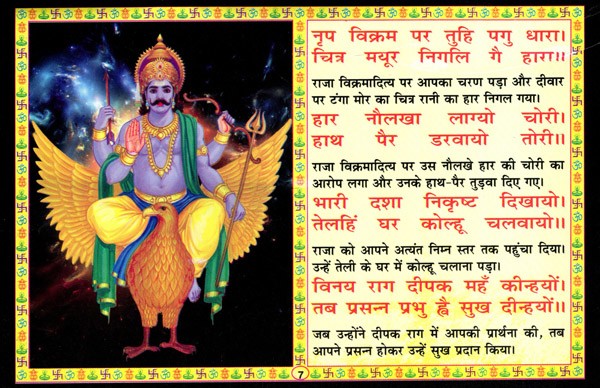 नृप विक्रम पर तुहि पगु धारा।
चित्र मयूर निगलि गै हारा॥
राजा विक्रमादित्य पर आपका चरण पड़ा और दीवार
पर टंगा मोर का चित्र रानी का हार निगल गया।
हार नौलखा लाग्यो चोरी।
हाथ पैर डरवायो तोरी॥
राजा विक्रमादित्य पर उस नौलखे हार की चोरी का
आरोप लगा और उनके हाथ-पैर तुड़वा दिए गए।
भारी दशा निकृष्ट दिखायो।
तेलहिं घर कोल्हू चलवायो॥
राजा को आपने अत्यंत निम्न स्तर तक पहुंचा दिया।
उन्हें तेली के घर में कोल्हू चलाना पड़ा।
विनय राग दीपक महँ कीन्हयों।
तब प्रसन्न प्रभु ह्वै सुख दीन्हयों॥
जब उन्होंने दीपक राग में आपकी प्रार्थना की, तब
आपने प्रसन्न होकर उन्हें सुख प्रदान किया।
7